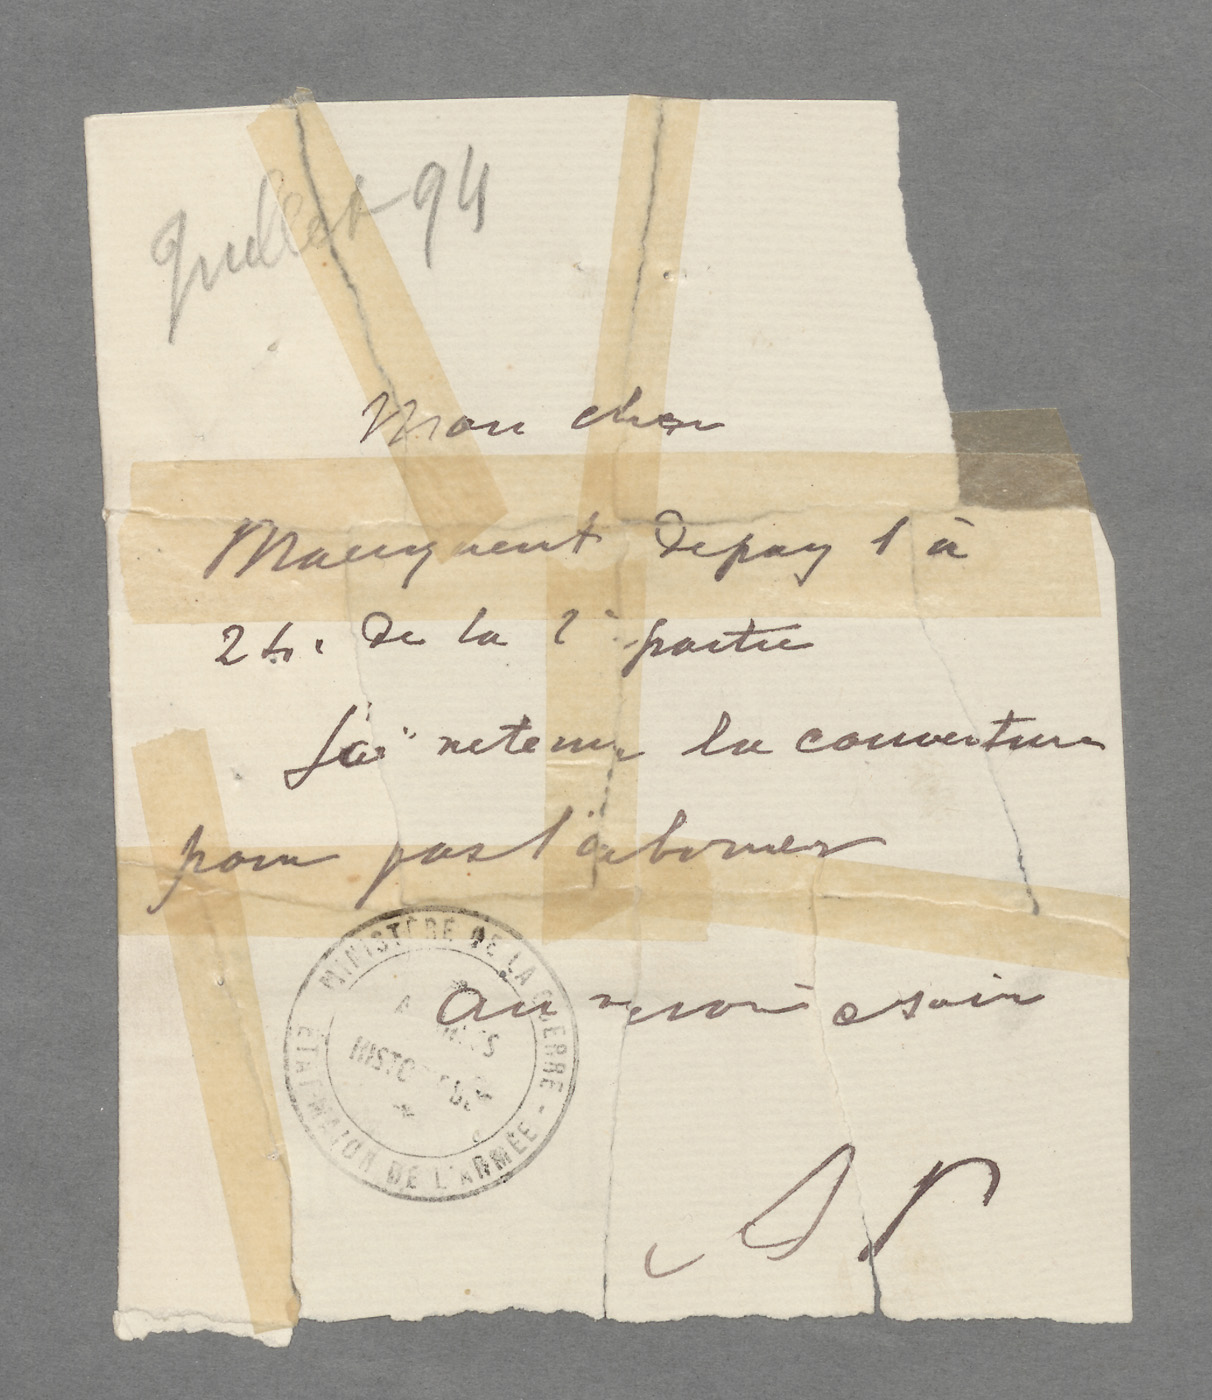 Juillet 94
Mon cher
Manquent de pag 1 à
24. de la 2e partie
J'ai retenu la couverture
pour pas l'abimer
au revoir a soir
MINISTÈRE DE LA GUERRE - ÉTAT-MAJOR DE L'ARMÉE -